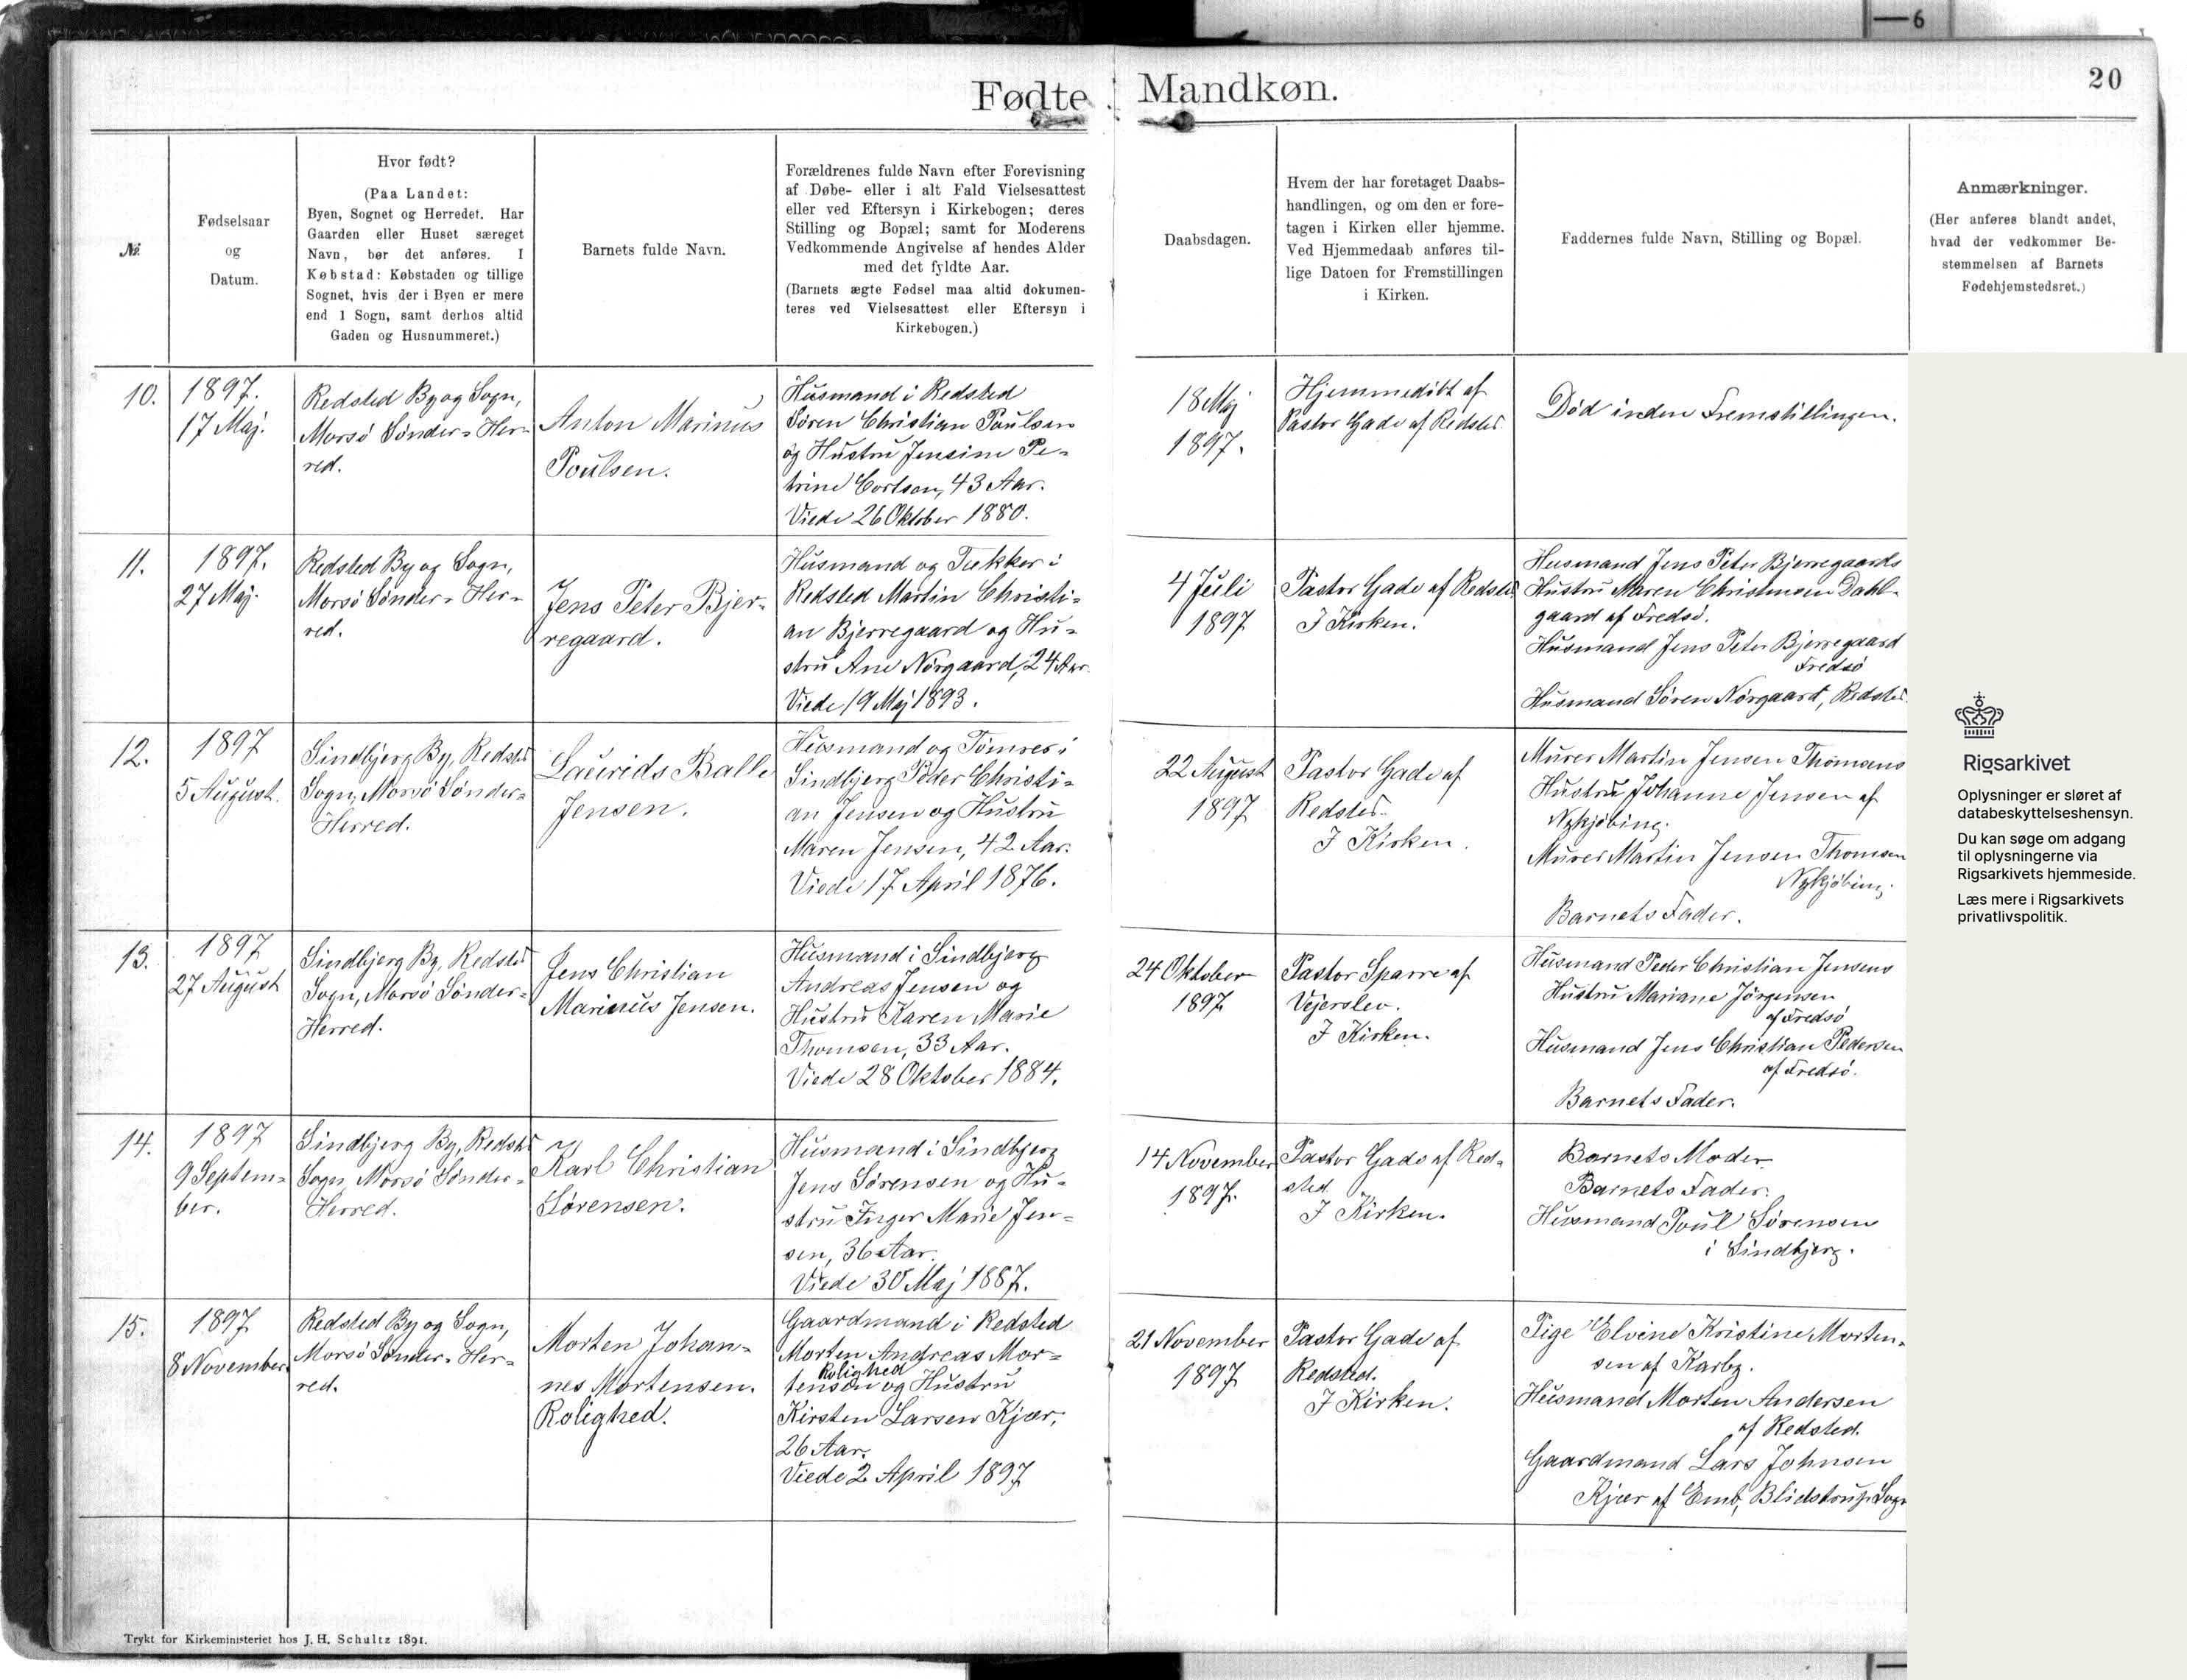 6
20
Fødte Mandkøn.
No.
Fødselsaar
og
Datum.
Hvor født?
(Paa Landet:
Byen, Sognet og Herredet. Har
Gaarden eller Huset særeget
Navn, bør det anføres. I
Købstad: Købstaden og tillige
Sognet, hvis der i Byen er mere
end 1 Sogn, samt derhos altid
Gaden og Husnummeret.)
Barnets fulde Navn.
Forældrenes fulde Navn efter Forevisning
af Døbe- eller i alt Fald Vielsesattest
eller ved Eftersyn i Kirkebogen; deres
Stilling og Bopæl; samt for Moderens
Vedkommende Angivelse af hendes Alder
med det fyldte Aar.
(Barnets ægte Fødsel maa altid dokumen-
teres ved Vielsesattest eller Eftersyn i
Kirkebogen.)
Daabsdagen.
Hvem der har foretaget Daabs-
handlingen, og om den er fore-
tagen i Kirken eller hjemme.
Ved Hjemmedaab anføres til-
lige Datoen for Fremstillingen
i Kirken.
Faddernes fulde Navn, Stilling og Bopæl.
Anmærkninger.
(Her anføres blandt andet,
hvad der vedkommer Be-
stemmelsen af Barnets
Fødehjemstedsret.)
10.
1897.
17 Maj.
Redsted By og Sogn,
Morsö Sönder= Her=
red.
Anton Marinus
Poulsen.
Husmand i Redsted
Sören Christian Poulsen
og Hustru Jensine Pe=
trine Cortsen, 43 Aar.
Viede 26 Oktober 1880.
18 Maj
1897.
Hjemmedöbt af
Pastor Gade af Redsted
Död inden Fremstillingen.
11.
1897.
27 Maj.
Redsted By og Sogn,
Morsö Sönder= Her=
red.
Jens Peter Bjer=
regaard.
Husmand og Tækker i
Redsted Martin Christi=
an Bjerregaard og Hu=
stru Ane Nörgaard, 24 Aar.
Viede 19 Maj 1893.
4 Juli
1897
Pastor Gade af Redsted
I Kirken.
Husmand Jens Peter Bjerregaards
Hustru Maren Christensen Dahl=
gaard af Fredsö.
Husmand Jens Peter Bjerregaard
Fredsö
Husmand Sören Nörgaard, Redsted.
12.
1897
5 August.
Sindbjerg By, Redsted
Sogn, Morsö Sönder=
Herred.
Laurids Balle
Jensen.
Husmand og Tömrer i
Sindbjerg Peder Christi=
an Jensen og Hustru
Maren Jensen, 42 Aar.
Viede 17 April 1876.
22 August
1897
Pastor Gade af
Redsted.
I Kirken.
Murer Martin Jensen Thomsens
Hustru Johanne Jensen af
Nykjöbing.
Murer Martin Jensen Thomsen
Nykjöbing.
Barnets Fader.
13.
1897
27 August
Sindbjerg By, Redsted
Sogn, Morsö Sönder=
Herred.
Jens Christian
Marinus Jensen.
Husmand i Sindbjerg
Andreas Jensen og
Hustru Karen Marie
Thomsen, 33 Aar.
Viede 28 Oktober 1884.
24 Oktober
1897
Pastor Sparre af
Vejerslev.
I Kirken.
Husmand Peder Christian Jensens
Hustru Mariane Jörgensen
af Fredsö
Husmand Jens Christian Pedersen
af Fredsö.
Barnets Fader.
14.
1897
9 Septem=
ber.
Sindbjerg By, Redsted
Sogn, Morsö Sönder=
Herred.
Karl Christian
Sörensen.
Husmand i Sindbjerg
Jens Sörensen og Hu=
stru Inger Marie Jen=
sen, 36 Aar.
Viede 30 Maj 1887.
14 November
1897.
Pastor Gade af Red=
sted.
I Kirken.
Barnets Moder
Barnets Fader.
Husmand Poul Sörensen
i Sindbjerg.
15.
1897
8 November
Redsted By og Sogn,
Morsö Sönder= Her=
red.
Morten Johan=
nes Mortensen.
Rolighed.
Gaardmand i Redsted
Morten Andreas Mor=
Rolighed
tensen og Hustru
Kirsten Larsen Kjær,
26 Aar.
Viede 2 April 1897
21 November
1897
Pastor Gade af
Redsted.
I Kirken.
Pige Elvine Kristine Morten=
sen af Karby.
Husmand Morten Andersen
af Redsted.
Gaardmand Lars Johnsen
Kjær af Emb, Blidstrup Sogn
Rigsarkivet
Oplysninger er sløret af
databeskyttelseshensyn.
Du kan søge om adgang
til oplysningerne via
Rigsarkivets hjemmeside.
Læs mere i Rigsarkivets
privatlivspolitik.
Trykt for Kirkeministeriet hos J. H. Schultz 1891.